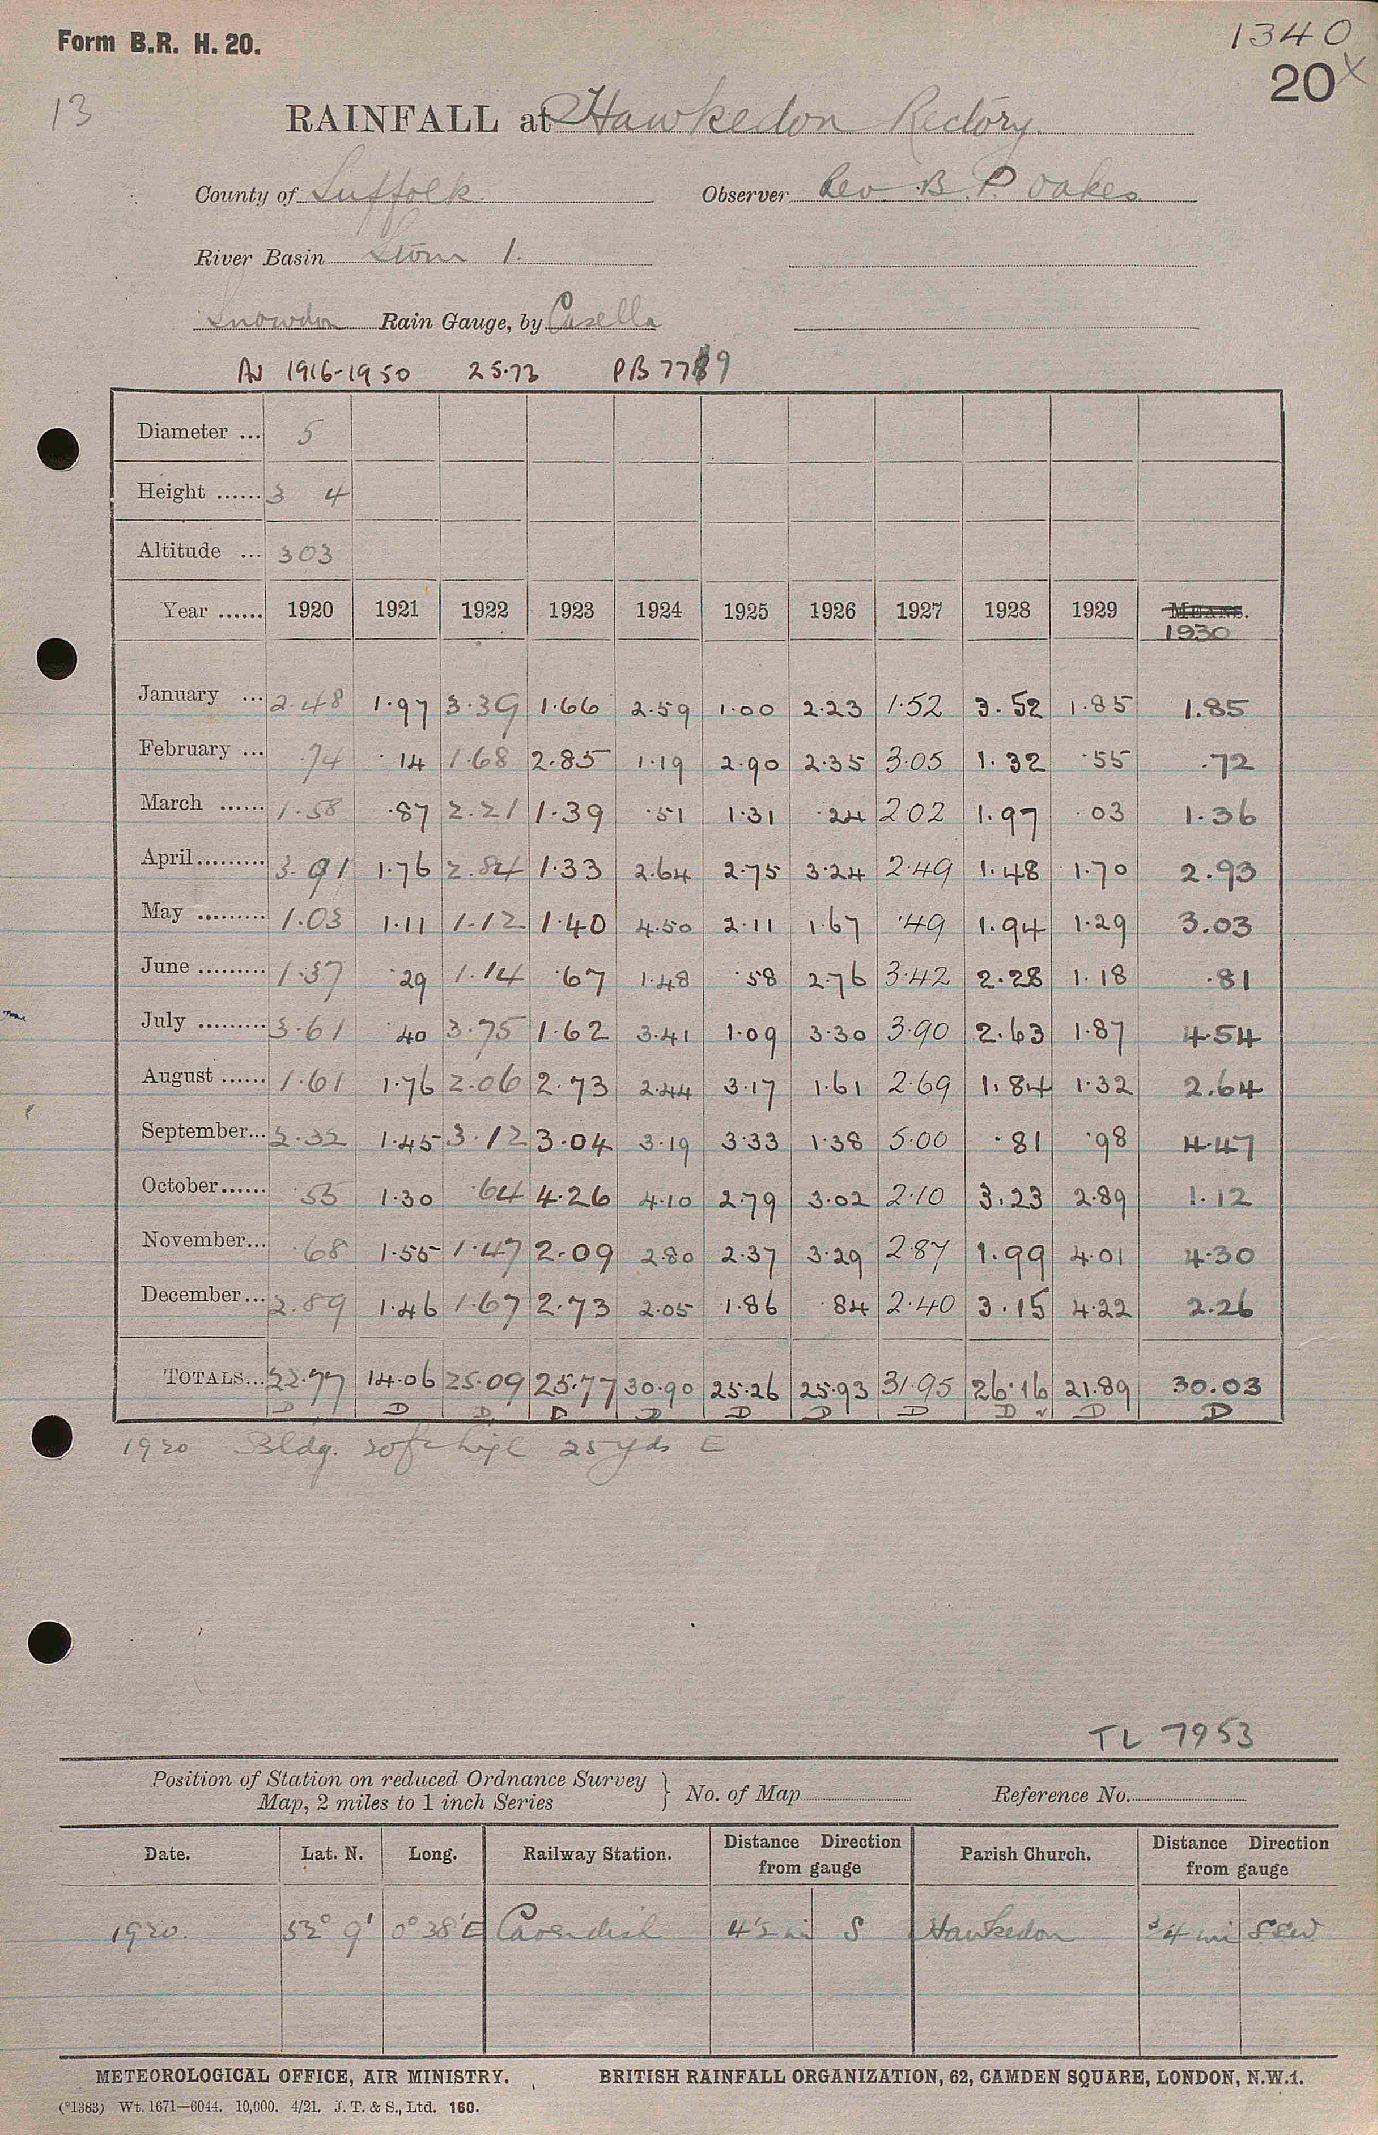 Form B.R. H. 20.
1340
20 X
13
RAINFALL at Hawkedon Rectory.
County of Suffolk Observer Rev. B. P. Oakes
River Basin Stour 1.
Snowdon Rain Gauge, by Casella
Av 1916-1950 25.73 PB 7789
Diameter ... 5
Height ...... 3 4
Altitude ... 303
Year ...... 1920 1921 1922 1923 1924 1925 1926 1927 1928 1929 MEANS.
1930
January ... 2.48 1.97 3.39 1.66 2.59 1.00 2.23 1.52 3.52 1.85 1.85
February ... .74 .14 1.68 2.85 1.19 2.90 2.35 3.05 1.32 .55 .72
March ...... 1.58 .87 2.21 1.39 .51 1.31 .24 2.02 1.97 .03 1.36
April ......... 3.91 1.76 2.84 1.33 2.64 2.75 3.24 2.49 1.48 1.70 2.93
May ......... 1.03 1.11 1.12 1.40 4.50 2.11 1.67 .49 1.94 1.29 3.03
June ......... 1.37 .29 1.14 .67 1.48 .58 2.76 3.42 2.28 1.18 .81
July ......... 3.61 .40 3.75 1.62 3.41 1.09 3.30 3.90 2.63 1.87 4.54
August ...... 1.61 1.76 2.06 2.73 2.44 3.17 1.61 2.69 1.84 1.32 2.64
September... 2.32 1.45 3.12 3.04 3.19 3.33 1.38 5.00 .81 .98 4.47
October...... .55 1.30 .64 4.26 4.10 2.79 3.02 2.10 3.23 2.89 1.12
November... .68 1.55 1.47 2.09 2.80 2.37 3.29 2.87 1.99 4.01 4.30
December... 2.89 1.46 1.67 2.73 2.05 1.86 .84 2.40 3.15 4.22 2.26
TOTALS... 22.77 14.06 25.09 25.77 30.90 25.26 25.93 31.95 26.16 21.89 30.03
D D D D D D D D D D D
1920 Bldg. 20ft high 25 yds E
TL 7953
Position of Station on reduced Ordnance Survey
Map, 2 miles to 1 inch Series } No. of Map Reference No.
Date. Lat. N. Long. Railway Station. Distance Direction from gauge Parish Church. Distance Direction from gauge
1920. 52° 9' 0° 38' E Cavendish 4½ mi S Hawkedon ¾ mi SSW
METEOROLOGICAL OFFICE, AIR MINISTRY. BRITISH RAINFALL ORGANIZATION, 62, CAMDEN SQUARE, LONDON, N.W.1.
(*1383) Wt. 1671—6044. 10,000. 4/21. J. T. & S., Ltd. 160.